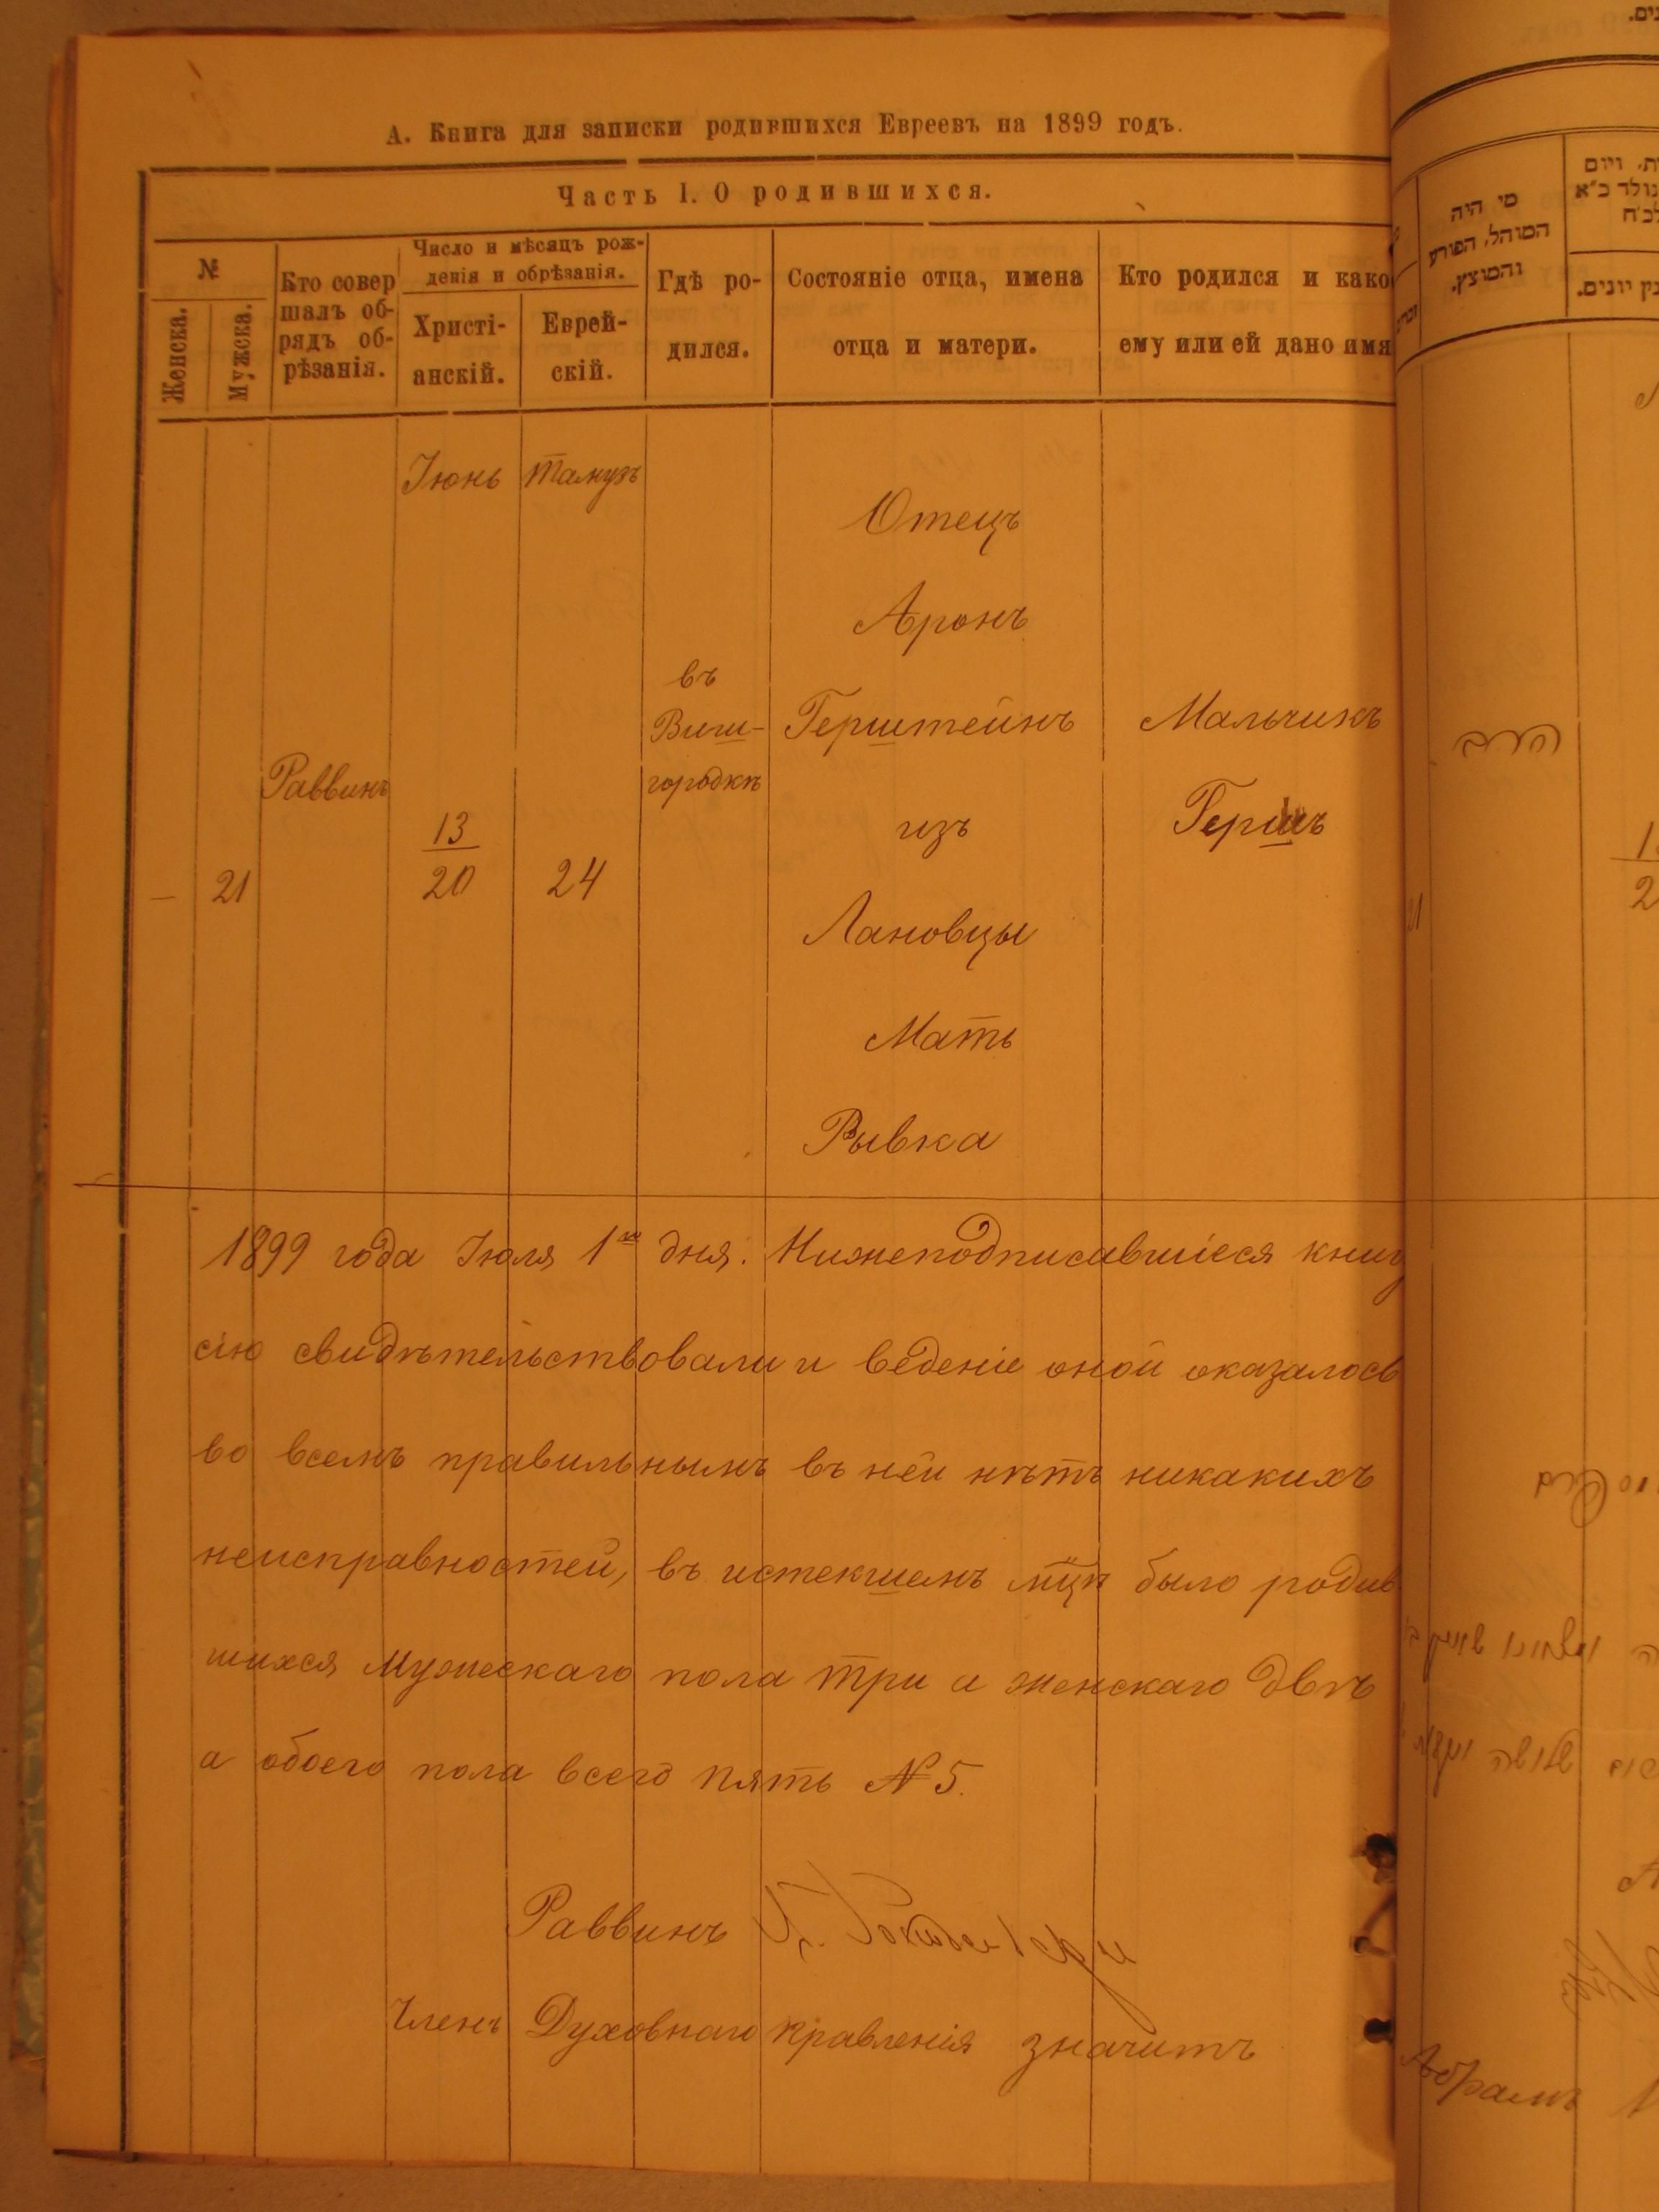 А. Книга для записки родившихся Евреевъ на 1899 годъ.
Часть I. О родившихся.
№
Женска.
Мужска.
Кто совер
шалъ об-
рядъ об-
рѣзанія.
Число и мѣсяцъ рож-
денія и обрѣзанія.
Христі-
анскій.
Еврей-
скій.
Гдѣ ро-
дился.
Состояніе отца, имена
отца и матери.
Кто родился и како
ему или ей дано имя
—
21
Раввинъ
Іюнь
13
20
Тамузъ
24
въ
Виш-
городкѣ
Отецъ
Аронъ
Герштейнъ
изъ
Лановцы
Мать
Рывка
Мальчикъ
Гершъ
1899 года Іюля 1го дня. Нижеподписавшіеся книгу
сію свидѣтельствовали и веденіе оной оказалось
во всемъ правильнымъ въ ней нѣтъ никакихъ
неисправностей, въ истекшемъ мцѣ было родив
шихся Мужескаго пола три а женскаго двѣ
а обоего пола всего пять № 5.
Раввинъ
Членъ Духовнаго правленія значитъ
מי היה
המוהל, הפורע
והמוצץ.
הרב
21
Абрамъ